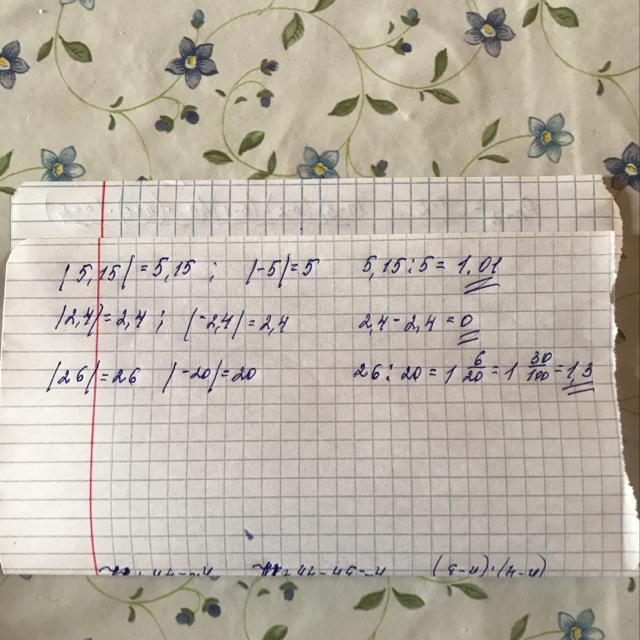 |5,15| = 5,15 ; |-5| = 5 5,15 : 5 = 1,01
|2,4| = 2,4 ; |-2,4| = 2,4 2,4 - 2,4 = 0
|26| = 26 |-20| = 20 26 : 20 = 1 6/20 = 1 30/100 = 1,3